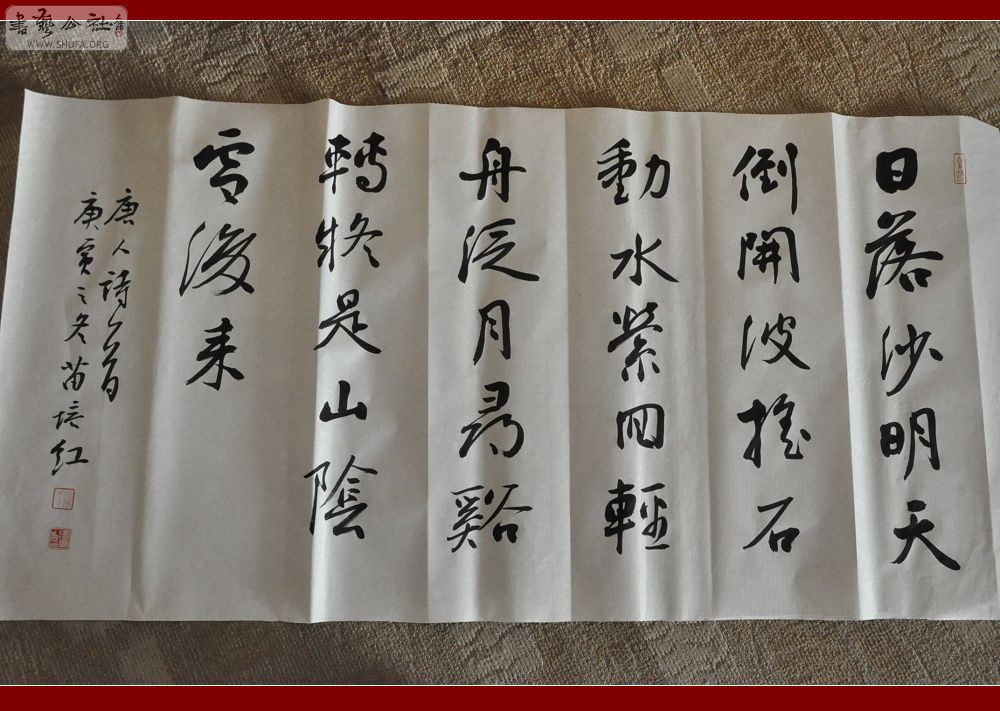 書藝公社
WWW.SHUFA.ORG
日落沙明天
倒開波搖石
動水縈回輕
舟泛月尋谿
轉疑是山陰
雪後来
唐人詩一首
庚寅之冬苗培红